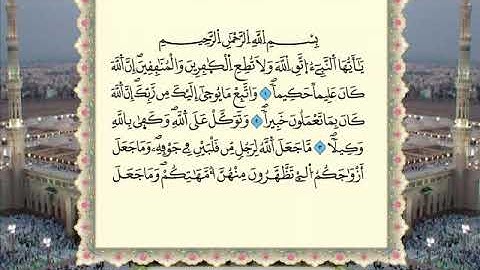 بِسْمِ اللَّهِ الرَّحْمَٰنِ الرَّحِيمِ
يَٰٓأَيُّهَا ٱلنَّبِيٓءُ ٱتَّقِ ٱللَّهَ وَلَا تُطِعِ ٱلْكَٰفِرِينَ وَٱلْمُنَٰفِقِينَ إِنَّ ٱللَّهَ
كَانَ عَلِيماً حَكِيماً ١ وَٱتَّبِعْ مَا يُوحَىٰٓ إِلَيْكَ مِن رَّبِّكَ إِنَّ ٱللَّهَ
كَانَ بِمَا تَعْمَلُونَ خَبِيراً ٢ وَتَوَكَّلْ عَلَى ٱللَّهِ وَكَفَىٰ بِٱللَّهِ
وَكِيلًا ٣ مَّا جَعَلَ ٱللَّهُ لِرَجُلٍ مِّن قَلْبَيْنِ فِي جَوْفِهِۦ وَمَا جَعَلَ
أَزْوَٰجَكُمُ ٱلَٰٓـِٔے تَظَّهَّرُونَ مِنْهُنَّ أُمَّهَٰتِكُمْ وَمَا جَعَلَ